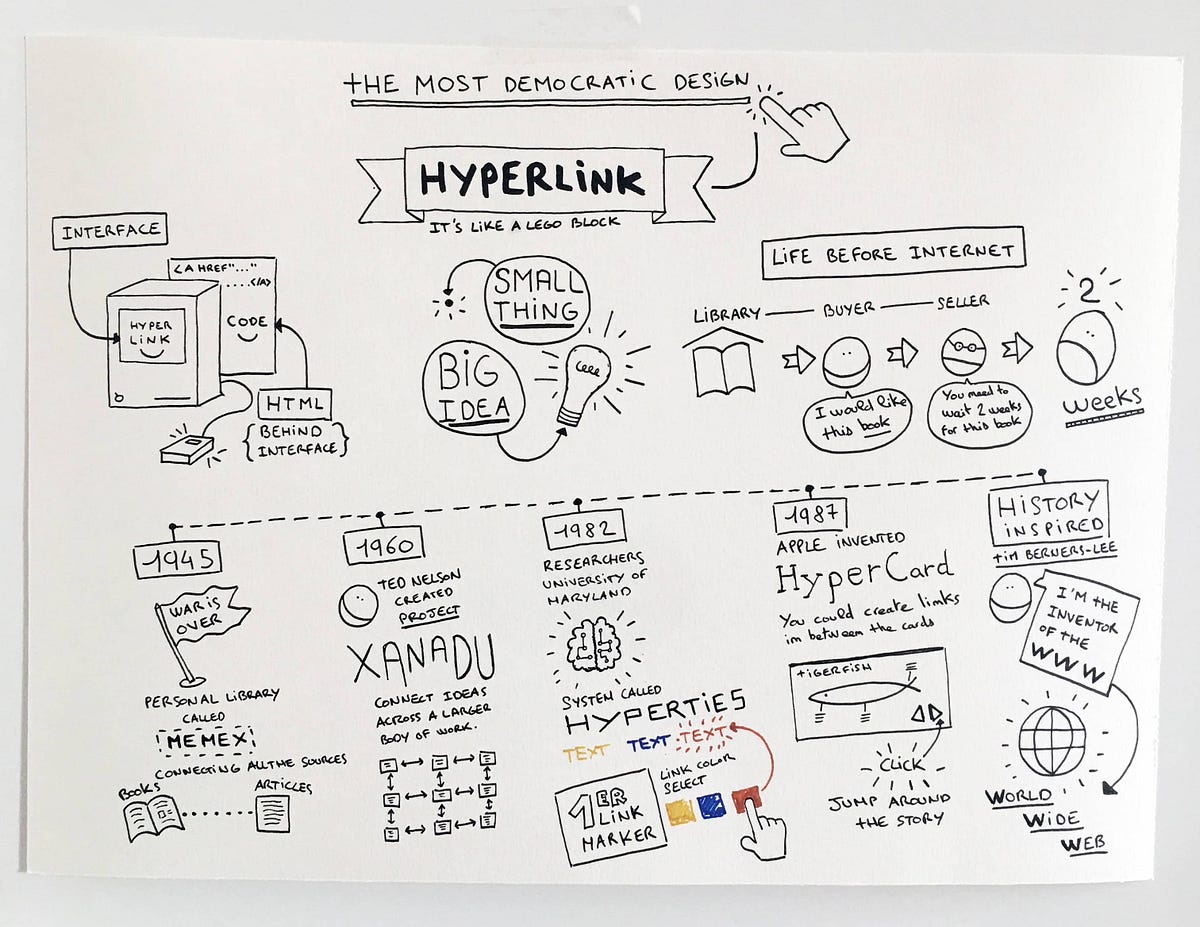 THE MOST DEMOCRATIC DESIGN
HYPERLINK
IT'S LIKE A LEGO BLOCK
INTERFACE
<A HREF"..."
....</A>
HYPER
LINK
CODE
HTML
{BEHIND
INTERFACE}
SMALL
THING
BIG
IDEA
LIFE BEFORE INTERNET
LIBRARY — BUYER — SELLER
I would like
this book
You need to
wait 2 weeks
for this book
2
weeks
1945
WAR IS
OVER
PERSONAL LIBRARY
CALLED
MEMEX
CONNECTING ALL THE SOURCES
BOOKS
ARTICLES
1960
TED NELSON
CREATED
PROJECT
XANADU
CONNECT IDEAS
ACROSS A LARGER
BODY OF WORK.
1982
RESEARCHERS
UNIVERSITY OF
MARYLAND
SYSTEM CALLED
HYPERTIES
TEXT TEXT TEXT
1ER
LINK
MARKER
LINK COLOR
SELECT
1987
APPLE INVENTED
HyperCard
You could create links
in between the cards
TIGERFISH
CLICK
JUMP AROUND
THE STORY
HISTORY
INSPIRED
TIM BERNERS-LEE
I'M THE
INVENTOR
OF THE
WWW
WORLD
WIDE
WEB